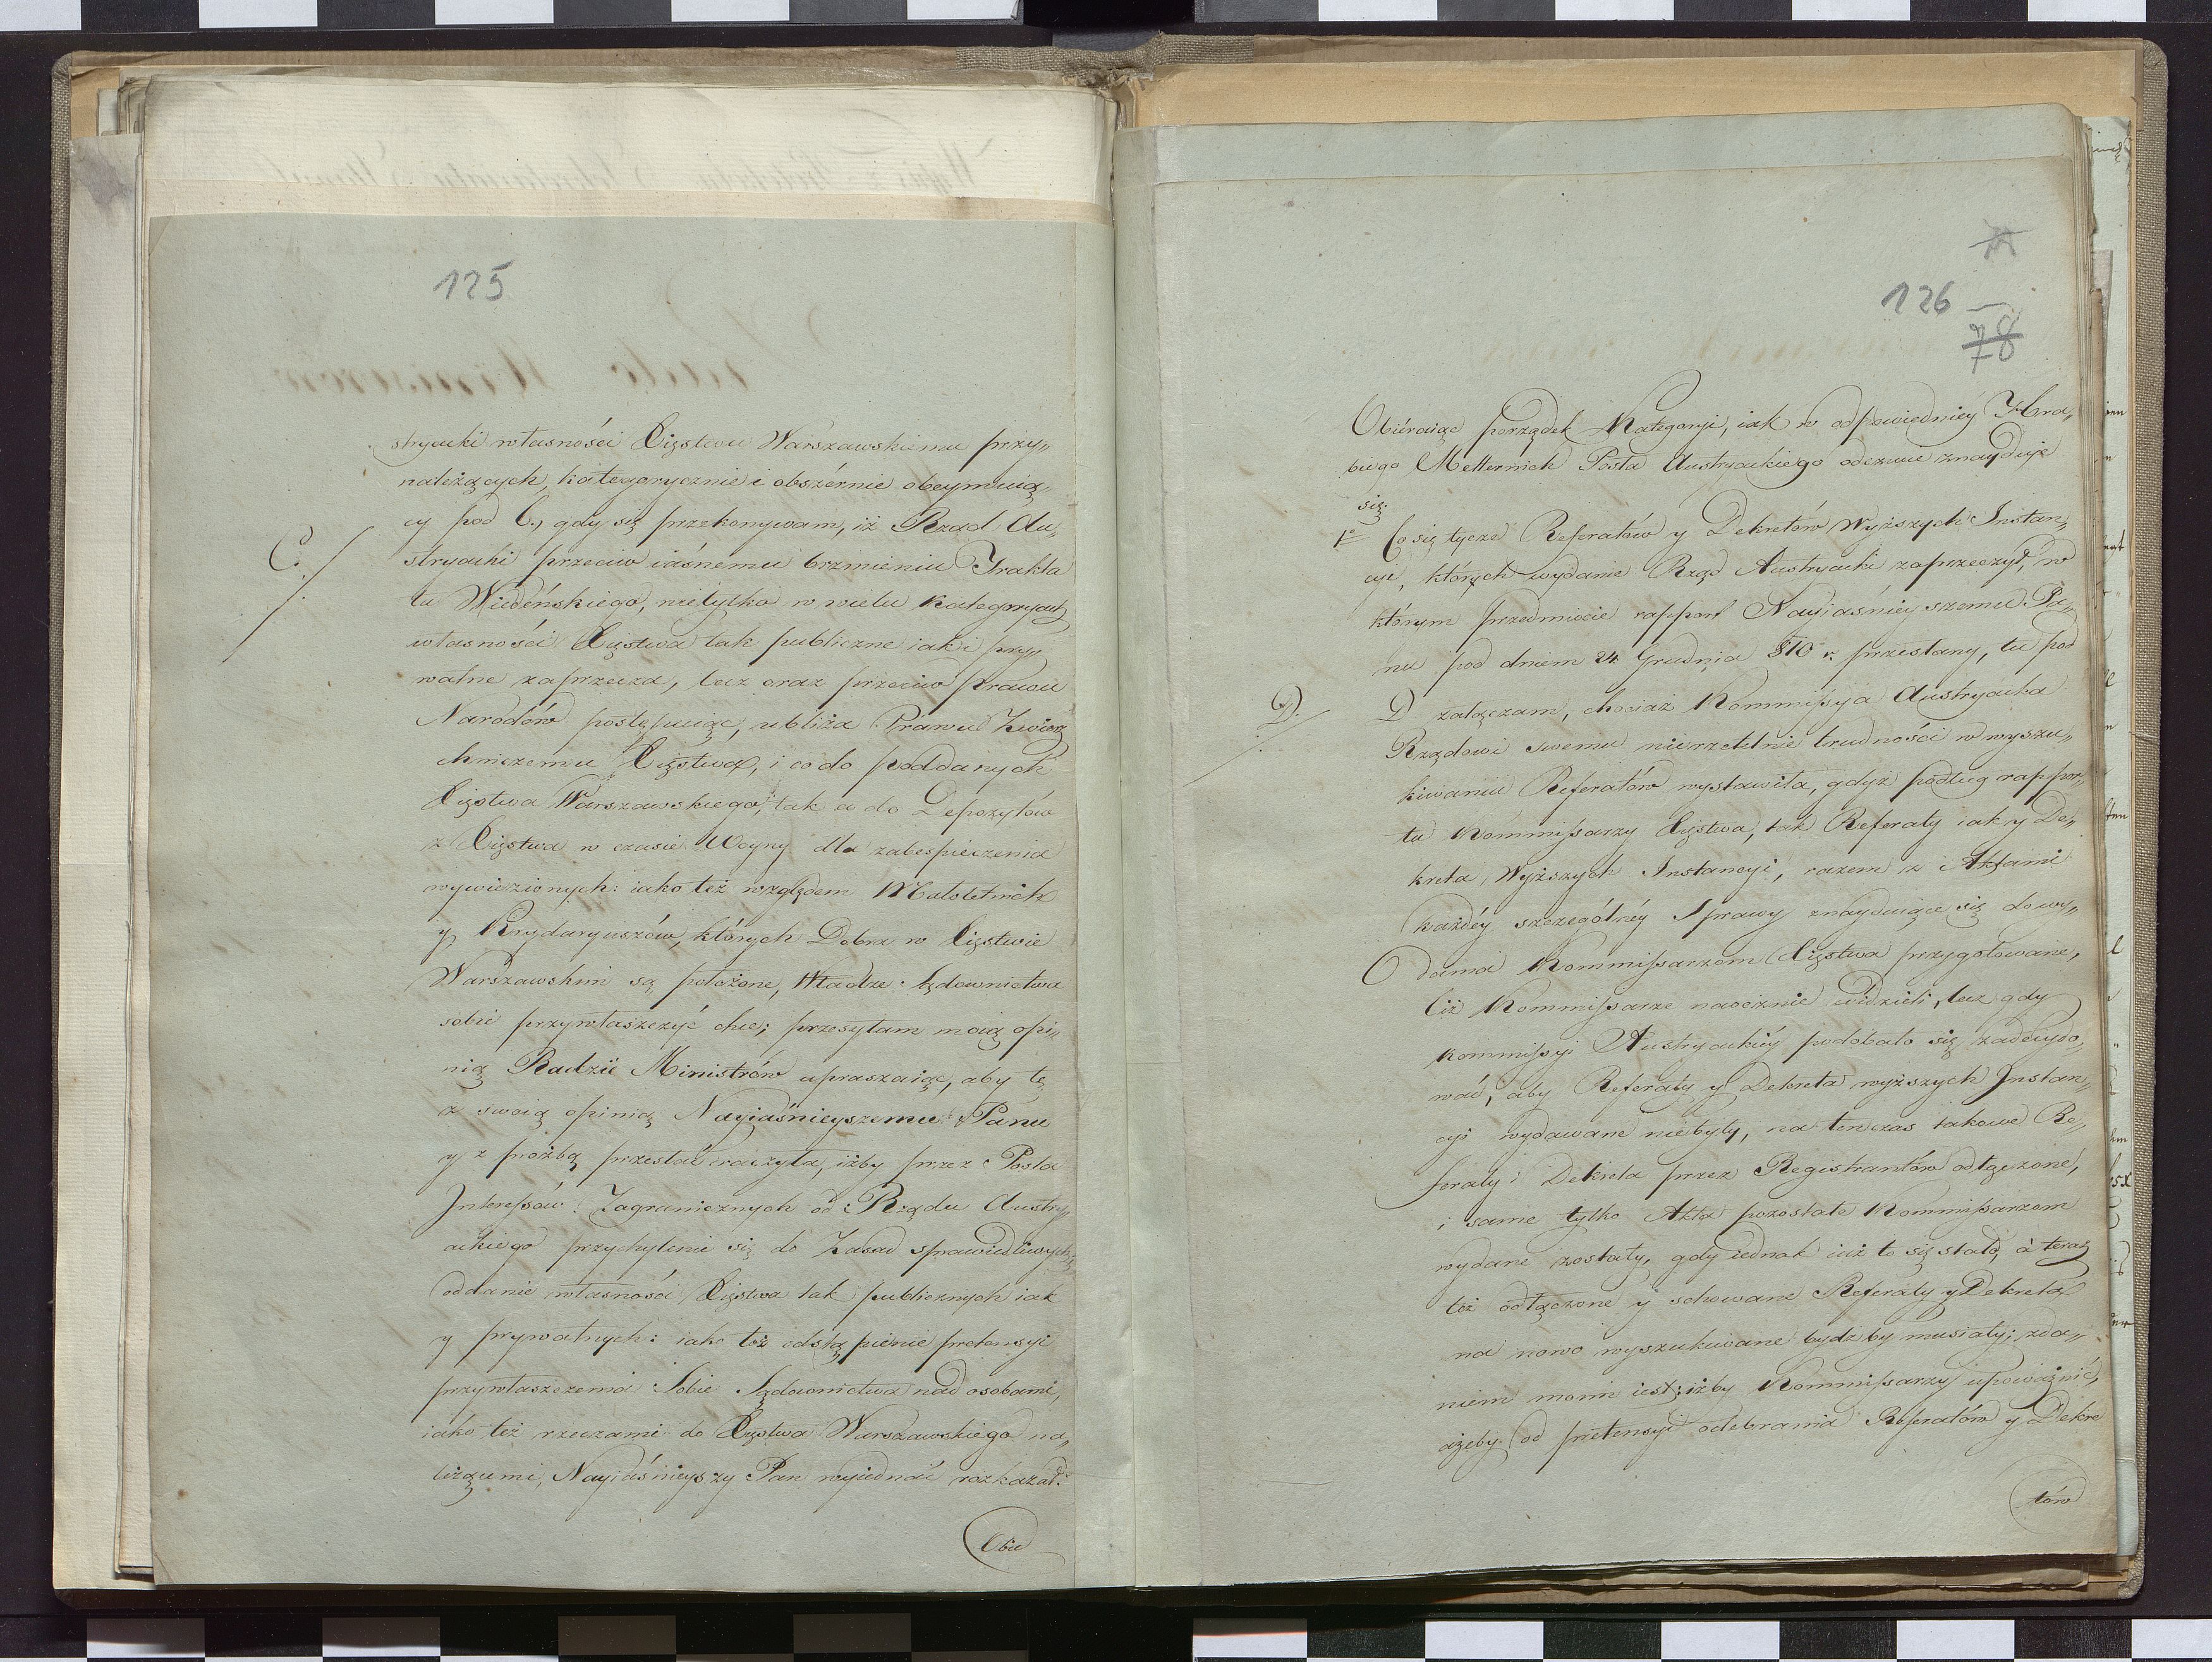 125
stryacki własności Xięstwu Warszawskiemu przy„
należących, kategorycznie i obszérnie obeymuią„
cy pod C., gdy się przekonywam, iż Rząd Au„
C./.
stryacki przeciw iásnemu brzmieniu Trakta
tu Wiedeńskiego, nietylko w wielu kategoryach
własności Xięstwa tak publiczne iak i pry„
watne zaprzecza, lecz oraz przeciw Prawu
Narodów postępuiąc, ubliża Prawu Zwierz
chniczemu Xięstwa, i co do poddanych
Xięstwa Warszawskiego, tak co do Depozytów
z Xięstwa w czasie Woyny dla zabespieczenia
wywiezionych: iako też względem Małoletnich
y Krydaryuszów, których Dobra w Xięstwie
Warszawskim są położone, Władze Sądownictwa
sobie przywłaszczyć chce; przesyłam moią opi„
nią Radzie Ministrów upraszaiąc, aby tę
z swoią opinią Nayiaśnieyszemu Panu
y z proźbą przesłać raczyła, iżby przez Posła
Interessów Zagranicznych od Rządu Austry„
ackiego przychylenie się do Zasad sprawiedliwych,
oddanie własności Xięstwa tak publicznych iak
y prywatnych: iako też odstąpienie pretensyi
przywłaszczenia Sobie Sądownictwa nad osobami,
iako też rzeczami do Xięstwa Warszawskiego na„
leżącemi, Nayiaśnieyszy Pan wyiednać rozkazał.
Obie
126
78
Obiéraiąc porządek Kategoryi, iak w odpowiedniéy Hra„
biego Metternich Posła Austryackiego odezwie znayduje
się.
1° Co się tycze Referatów y Dekretów Wyższych Instan„
cyi, których wydanie Rząd Austryacki zaprzeczył, w
którym przedmiocie rapport Nayiaśnieyszemu Pa„
nu pod dniem 24 Grudnia 810 r. przesłany, tu pod
D./.
D załączam, chociaż Kommissya Austryacka
Rządowi swemu nierzetelnie trudności w wyszu„
kiwaniu Referatów wystawiła, gdyż podług rappor„
tu Kommissarzy Xięstwa, tak Referaty iak y De„
kreta Wyższych Instancyi, razem z Aktami
każdéy szczególnéy Sprawy znayduiące się do wy„
dania Kommissarzom Xięstwa przygotowane,
Ciż Kommissarze naocznie widzieli, lecz gdy
Kommissyi Austryackiéy podobało się zadecydo„
wać, aby Referaty y Dekreta wyższych Instan„
cyi wydawane niebyły, na tenczas takowe Re„
feraty i Dekreta przez Registrantów odłączone,
i same tylko Akta pozostałe Kommissarzom
wydane zostały, gdy iednak iuż to się stało, à teraz
też odłączone y schowane Referaty y Dekreta
na nowo wyszukiwane bydź by musiały; zda„
niem moim iest; iżby Kommissarzy upoważnić,
ażeby od pretensyi odebrania Referatów y Dekre
tów